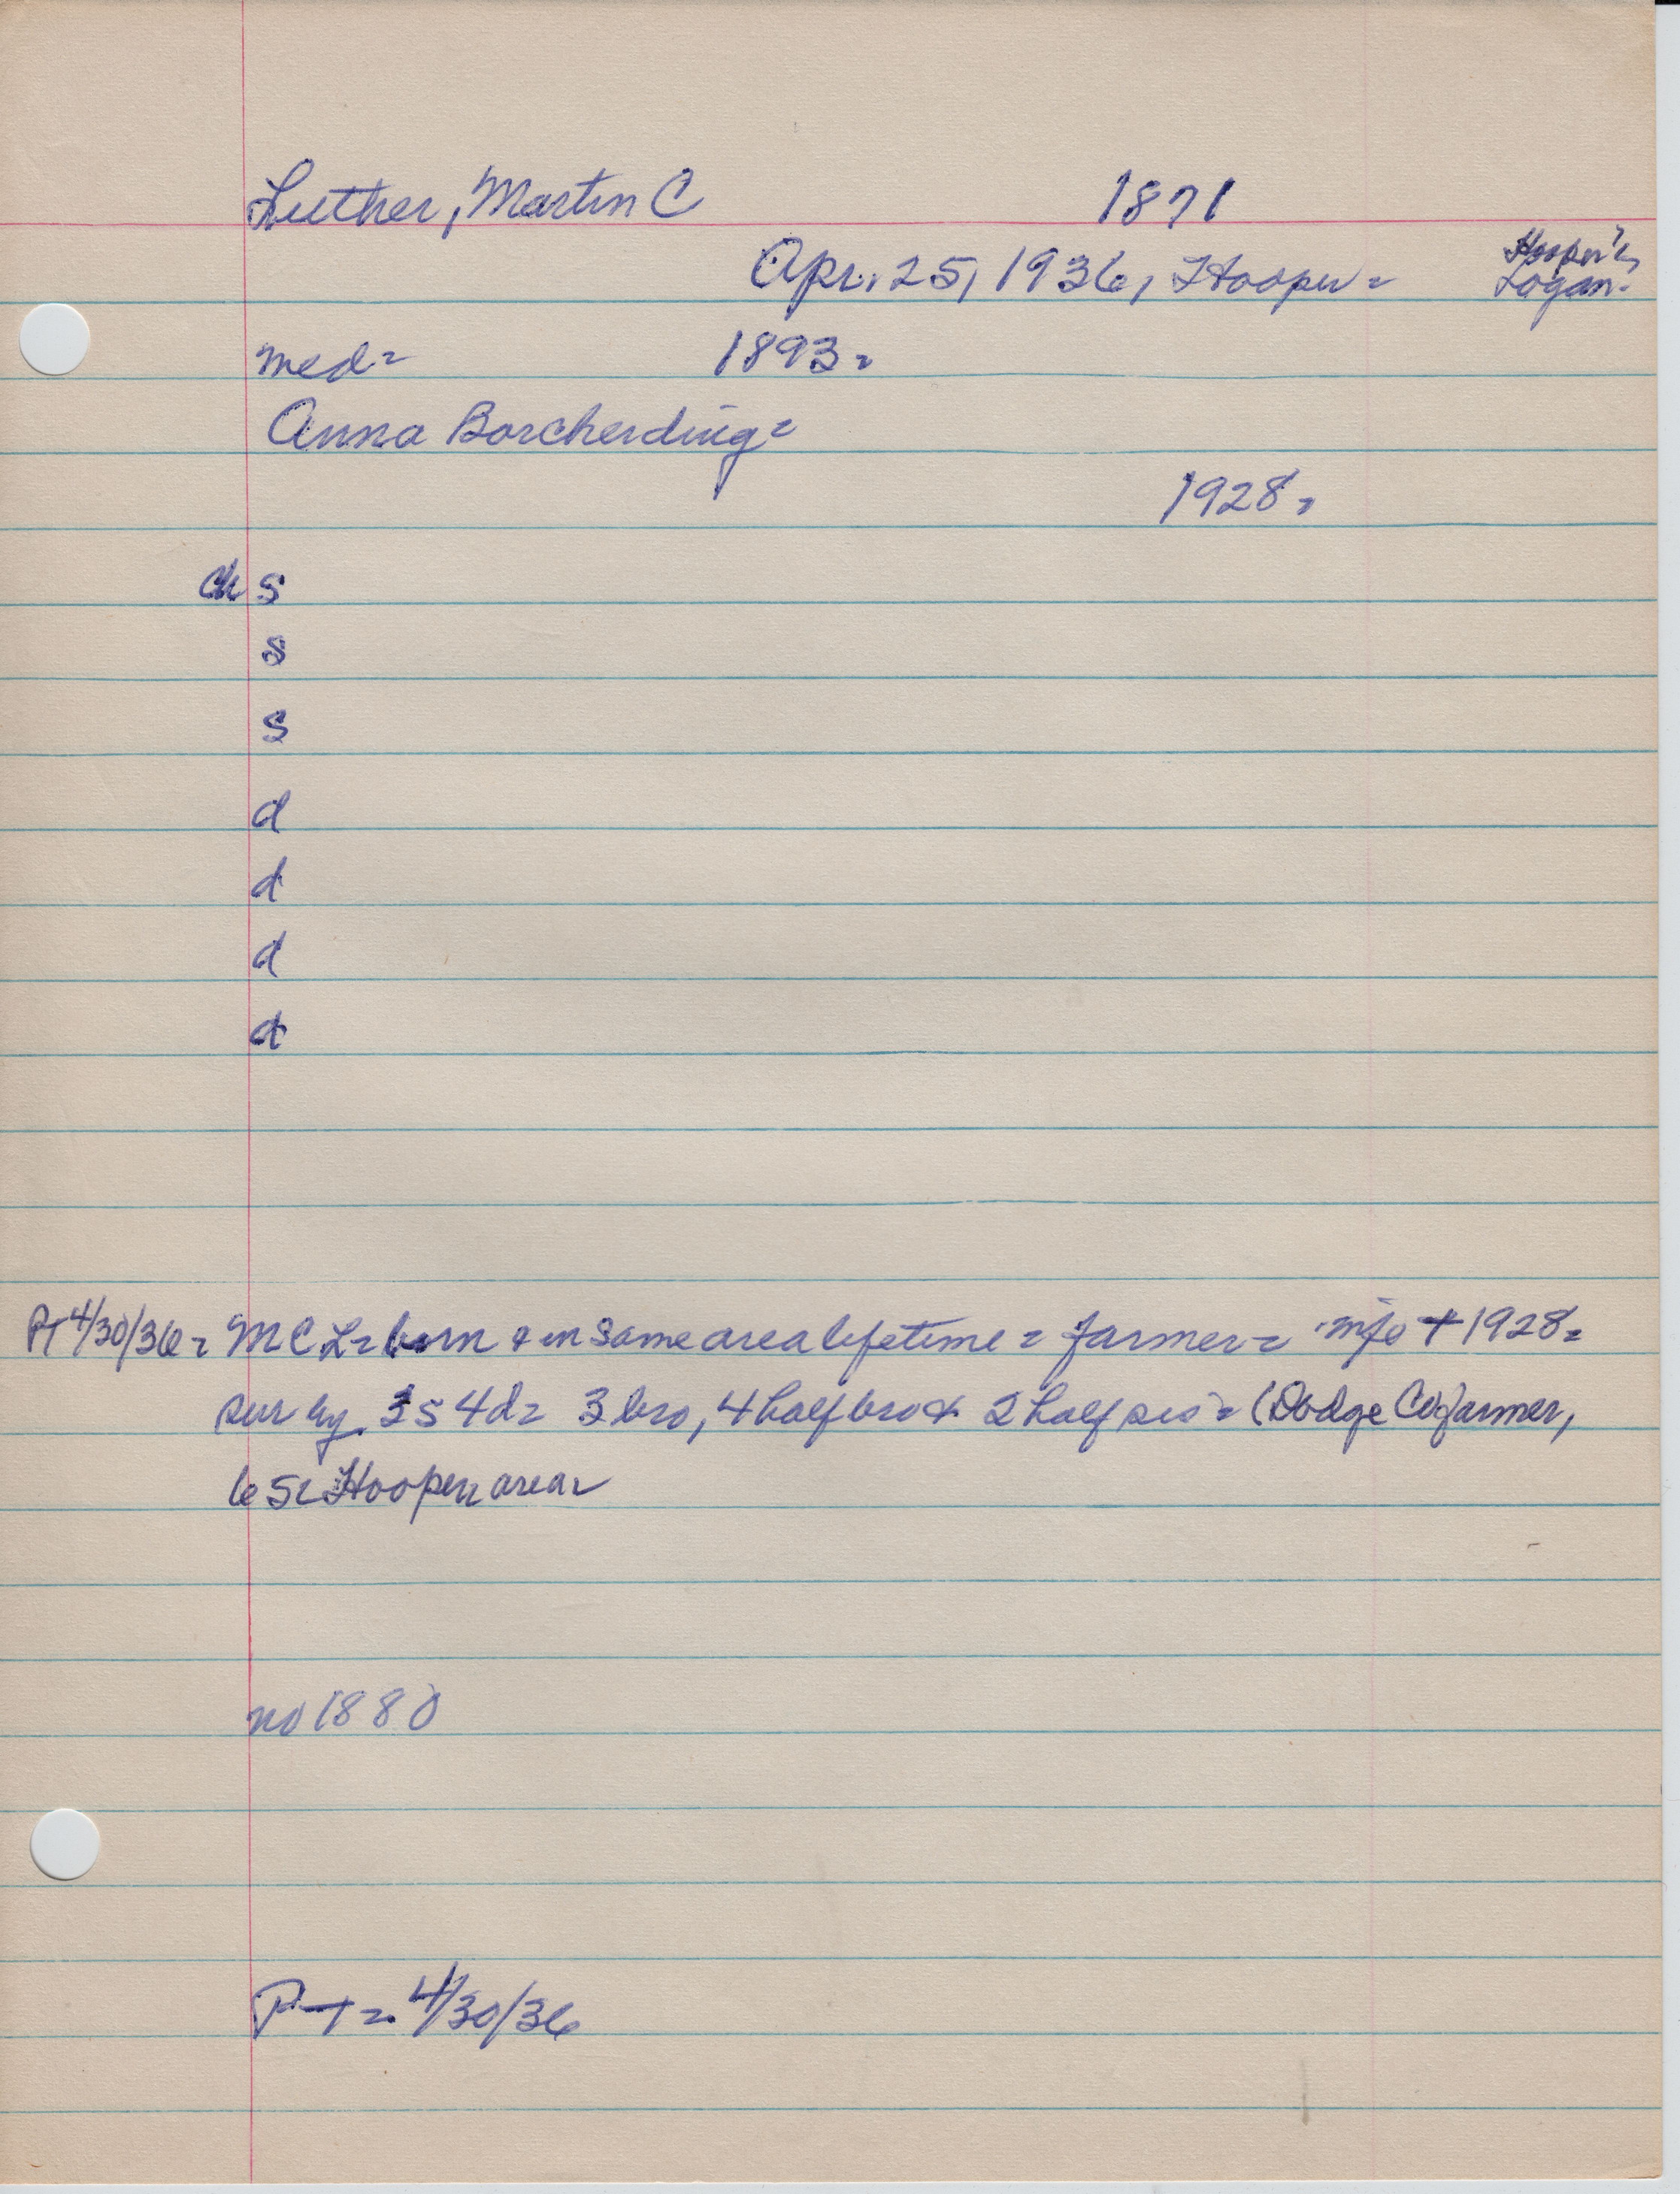 Luther, Martin C 1871
Apr. 25, 1936, Hooper = Hooper &
Logan.
med = 1893 =
Anna Borcherding =
1928 =
ch s
s
s
d
d
d
d
PT 4/30/36 = M C L = born & in same area lifetime = farmer = + 1928 =
sur by 3 s 4 d = 3 bro, 4 half bro & 2 half sis = (Dodge Co) farmer,
65 = Hooper area =
no 1880
PT = 4/30/36